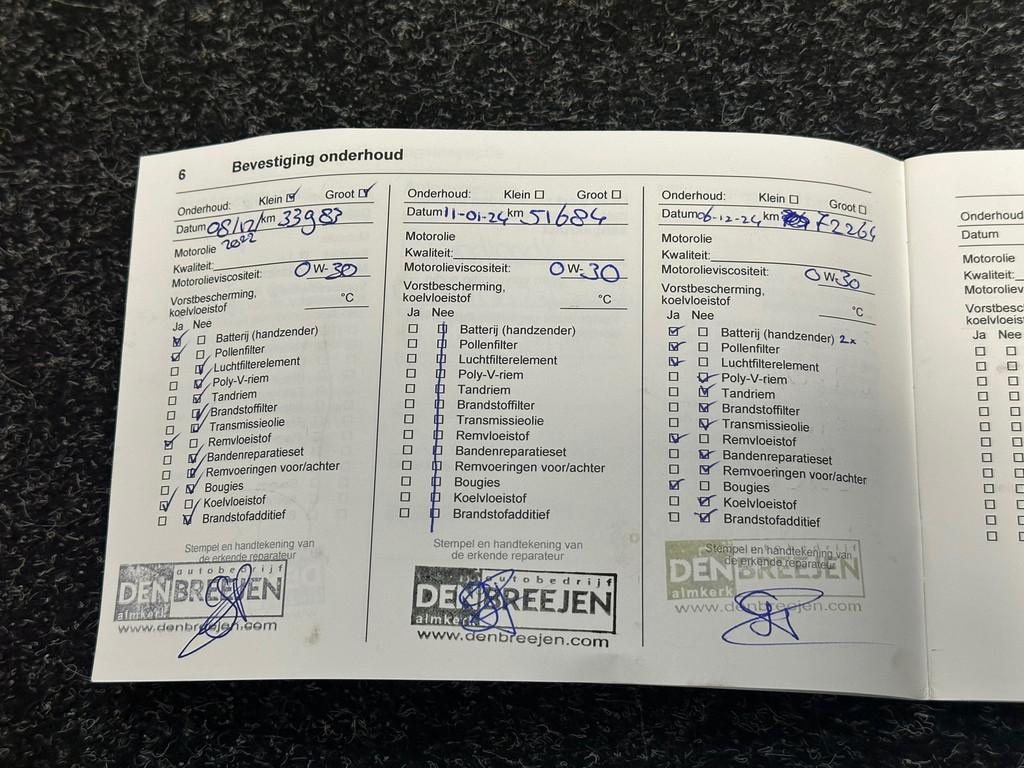 6 Bevestiging onderhoud
Onderhoud: Klein ☑ Groot ☑
Datum 08/12/2022 km 33983
Motorolie
Kwaliteit:
Motorolieviscositeit: 0W-30
Vorstbescherming, koelvloeistof °C
Ja Nee
☑ ☐ Batterij (handzender)
☑ ☐ Pollenfilter
☐ ☑ Luchtfilterelement
☐ ☑ Poly-V-riem
☐ ☑ Tandriem
☐ ☑ Brandstoffilter
☐ ☑ Transmissieolie
☑ ☐ Remvloeistof
☐ ☑ Bandenreparatieset
☐ ☑ Remvoeringen voor/achter
☐ ☑ Bougies
☑ ☐ Koelvloeistof
☐ ☑ Brandstofadditief
Stempel en handtekening van
de erkende reparateur
autobedrijf
DENBREEJEN
almkerk
www.denbreejen.com
Onderhoud: Klein ☐ Groot ☐
Datum 11-01-24 km 51684
Motorolie
Kwaliteit:
Motorolieviscositeit: 0W-30
Vorstbescherming,
koelvloeistof °C
Ja Nee
Batterij (handzender)
Pollenfilter
Luchtfilterelement
Poly-V-riem
Tandriem
Brandstoffilter
Transmissieolie
Remvloeistof
Bandenreparatieset
Remvoeringen voor/achter
Bougies
Koelvloeistof
Brandstofadditief
Stempel en handtekening van
de erkende reparateur
autobedrijf
DENBREEJEN
almkerk
www.denbreejen.com
Onderhoud: Klein ☐ Groot ☐
Datum 06-12-24 km 72264
Motorolie
Kwaliteit:
Motorolieviscositeit: 0W-30
Vorstbescherming,
koelvloeistof °C
Ja Nee
☑ ☐ Batterij (handzender) 2x
☑ ☐ Pollenfilter
☑ ☐ Luchtfilterelement
☐ ☑ Poly-V-riem
☐ ☑ Tandriem
☐ ☑ Brandstoffilter
☐ ☑ Transmissieolie
☑ ☐ Remvloeistof
☐ ☑ Bandenreparatieset
☐ ☑ Remvoeringen voor/achter
☑ ☐ Bougies
☐ ☑ Koelvloeistof
☐ ☑ Brandstofadditief
Stempel en handtekening van
de erkende reparateur
DENBREEJEN
www.denbreejen.com
Onderhoud
Datum
Motorolie
Kwaliteit:
Motoroliev
Vorstbesc
koelvloeist
Ja Nee